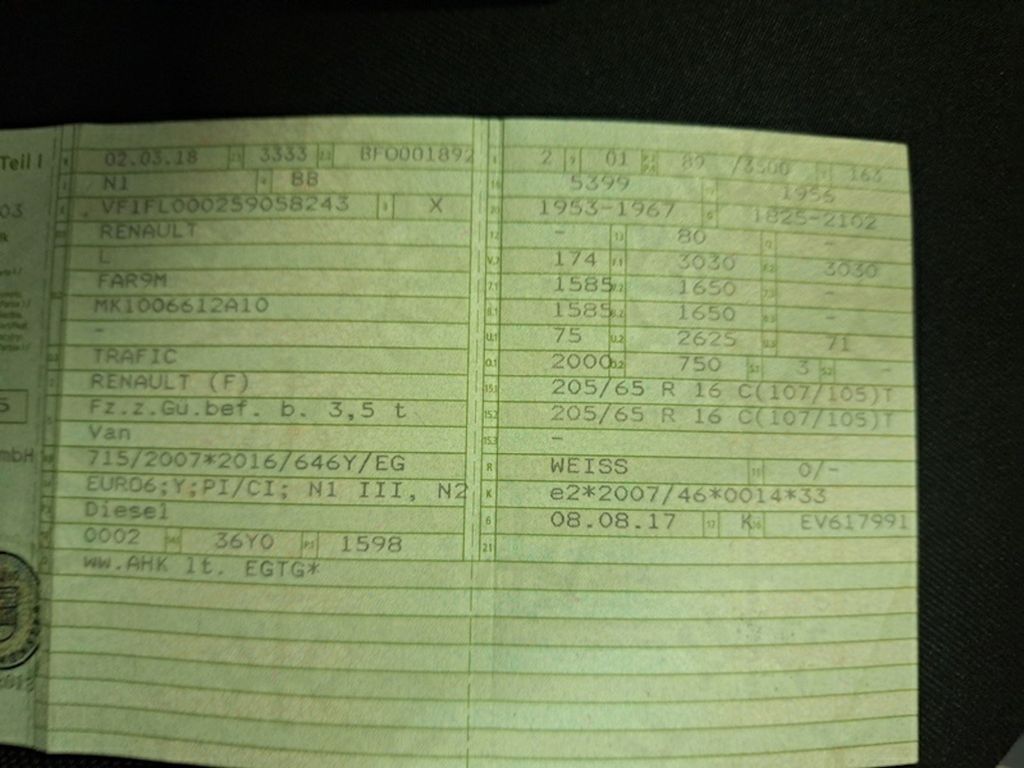 Teil I
02.03.18 3333 BFO001892
N1 4 BB
VF1FL000259058243 3 X
RENAULT
L
FAR9M
MK1006612A10
-
TRAFIC
RENAULT (F)
Fz.z.Gü.bef. b. 3,5 t
Van
715/2007*2016/646Y/EG
EURO6;Y;PI/CI; N1 III, N2
Diesel
0002 36Y0 1598
ww.AHK lt. EGTG*
03
mbH
2 9 01 89 /3500 163
5399 1956
1953-1967 1825-2102
- 13 80 -
V.7 174 F.1 3030 F.2 3030
7.1 1585 7.2 1650 -
8.1 1585 8.2 1650 -
U.1 75 U.2 2625 U.3 71
O.1 2000 O.2 750 S.1 3 S.2 -
15.1 205/65 R 16 C(107/105)T
15.2 205/65 R 16 C(107/105)T
15.3 -
R WEISS 11 0/-
K e2*2007/46*0014*33
6 08.08.17 17 K 16 EV617991
21